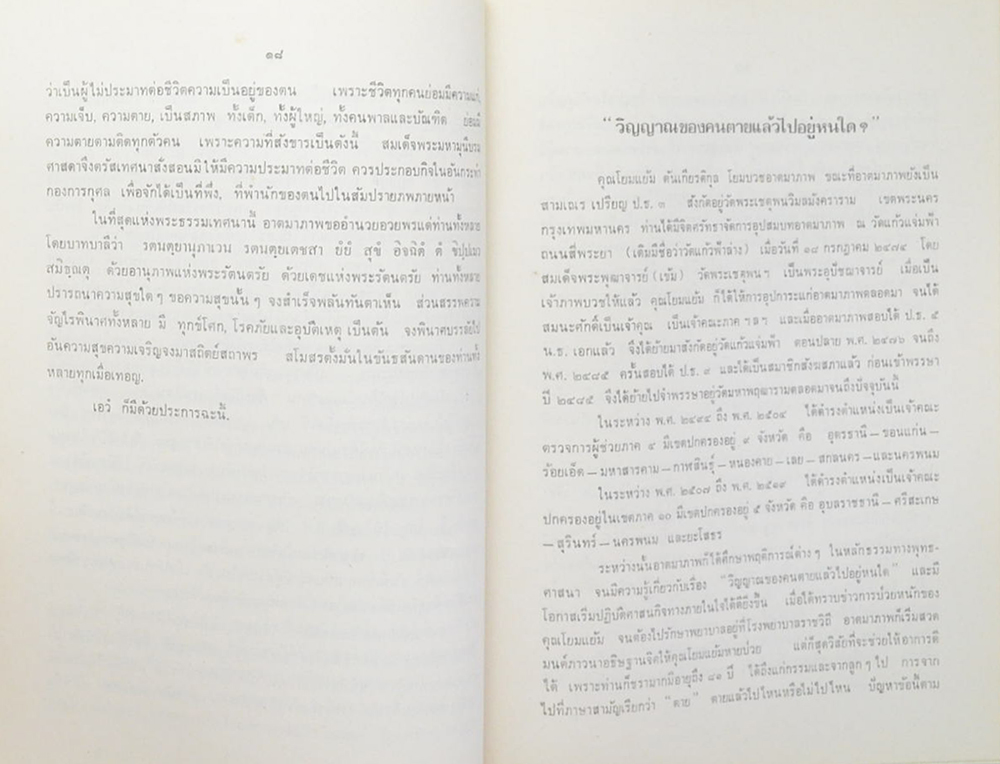 ๑๘
ว่าเป็นผู้ไม่ประมาทต่อชีวิตความเป็นอยู่ของตน เพราะชีวิตทุกคนย่อมมีความแก่,
ความเจ็บ, ความตาย, เป็นสภาพ ทั้งเด็ก, ทั้งผู้ใหญ่, ทั้งคนพาลและบัณฑิต ย่อมมี
ความตายตามติดทุกตัวคน เพราะความที่สังขารเป็นดังนี้ สมเด็จพระมหามุนีบรม
ศาสดาจึงตรัสเทศนาสั่งสอนมิให้มีความประมาทต่อชีวิต ควรประกอบกิจในอันกระทำ
กองการกุศล เพื่อจักได้เป็นที่พึ่ง, ที่พำนักของตนไปในสัมปรายภพภายหน้า
ในที่สุดแห่งพระธรรมเทศนานี้ อาตมาภาพขออำนวยอวยพรแด่ท่านทั้งหลาย
โดยบาทบาลีว่า รตนตฺยานุภาเวน รตนตฺยเตชสา ยํยํ สุขํ อิจฺฉิตํ ตํ ขิปฺปเมว
สมิชฺฌตุ ด้วยอานุภาพแห่งพระรัตนตรัย ด้วยเดชแห่งพระรัตนตรัย ท่านทั้งหลาย
ปรารถนาความสุขใด ๆ ขอความสุขนั้น ๆ จงสำเร็จพลันทันตาเห็น ส่วนสรรพความ
จัญไรพินาศทั้งหลาย มี ทุกข์โศก, โรคภัยและอุปัติเหตุ เป็นต้น จงพินาศบรรลัยไป
อันความสุขความเจริญจงมาสถิตย์สถาพร สโมสรตั้งมั่นในขันธสันดานของท่านทั้ง
หลายทุกเมื่อเทอญ.
เอวํ ก็มีด้วยประการฉะนี้.
“วิญญาณของคนตายแล้วไปอยู่หนใด ?”
คุณโยมแย้ม ตันเกียรติกุล โยมบวชอาตมาภาพ ขณะที่อาตมาภาพยังเป็น
สามเณร เปรียญ ป.ธ. ๓ สังกัดอยู่วัดพระเชตุพนวิมลมังคราราม เขตพระนคร
กรุงเทพมหานคร ท่านได้มีจิตศรัทธาจัดการอุปสมบทอาตมาภาพ ณ วัดแก้วแจ่มฟ้า
ถนนสี่พระยา (เดิมมีชื่อว่าวัดแก้วฟ้าล่าง) เมื่อวันที่ ๑๘ กรกฎาคม ๒๔๗๔ โดย
สมเด็จพระพุฒาจารย์ (เข้ม) วัดพระเชตุพน ฯ เป็นพระอุปัชฌาจารย์ เมื่อเป็น
เจ้าภาพบวชให้แล้ว คุณโยมแย้ม ก็ได้ให้การอุปการะแก่อาตมาภาพตลอดมา จนได้
สมนะศักดิ์เป็นเจ้าคุณ เป็นเจ้าคณะภาค ฯลฯ และเมื่ออาตมาภาพสอบได้ ป.ธ. ๕
น.ธ. เอกแล้ว จึงได้ย้ายมาสังกัดอยู่วัดแก้วแจ่มฟ้า ตอนปลาย พ.ศ. ๒๔๗๖ จนถึง
พ.ศ. ๒๔๘๕ ครั้นสอบได้ ป.ธ. ๙ และได้เป็นสมาชิกสังฆสภาแล้ว ก่อนเข้าพรรษา
ปี ๒๔๘๕ จึงได้ย้ายไปจำพรรษาอยู่วัดมหาพฤฒารามตลอดมาจนถึงปัจจุบันนี้
ในระหว่าง พ.ศ. ๒๔๙๔ ถึง พ.ศ. ๒๕๐๔ ได้ดำรงตำแหน่งเป็นเจ้าคณะ
ตรวจการผู้ช่วยภาค ๔ มีเขตปกครองอยู่ ๙ จังหวัด คือ อุดรธานี – ขอนแก่น –
ร้อยเอ็ด – มหาสารคาม – กาฬสินธุ์ – หนองคาย – เลย – สกลนคร – และนครพนม
ในระหว่าง พ.ศ. ๒๕๐๗ ถึง พ.ศ. ๒๕๑๙ ได้ดำรงตำแหน่งเป็นเจ้าคณะ
ปกครองอยู่ในเขตภาค ๑๐ มีเขตปกครองอยู่ ๕ จังหวัด คือ อุบลราชธานี – ศรีสะเกษ
– สุรินทร์ – นครพนม และยะโสธร
ระหว่างนั้นอาตมาภาพก็ได้ศึกษาพฤติการณ์ต่าง ๆ ในหลักธรรมทางพุทธ-
ศาสนา จนมีความรู้เกี่ยวกับเรื่อง “วิญญาณของคนตายแล้วไปอยู่หนใด” และมี
โอกาสเริ่มปฏิบัติศาสนกิจทางภายในใจได้ดียิ่งขึ้น เมื่อได้ทราบข่าวการป่วยหนักของ
คุณโยมแย้ม จนต้องไปรักษาพยาบาลอยู่ที่โรงพยาบาลราชวิถี อาตมาภาพก็เริ่มสวด
มนต์ภาวนาอธิษฐานจิตให้คุณโยมแย้มหายป่วย แต่ก็สุดวิสัยที่จะช่วยให้อาการดี
ได้ เพราะท่านก็ชรามากมีอายุถึง ๘๑ ปี ได้ถึงแก่กรรมและจากลูก ๆ ไป การจาก
ไปที่ภาษาสามัญเรียกว่า “ตาย” ตายแล้วไปไหนหรือไม่ไปไหน ปัญหาข้อนี้ตาม